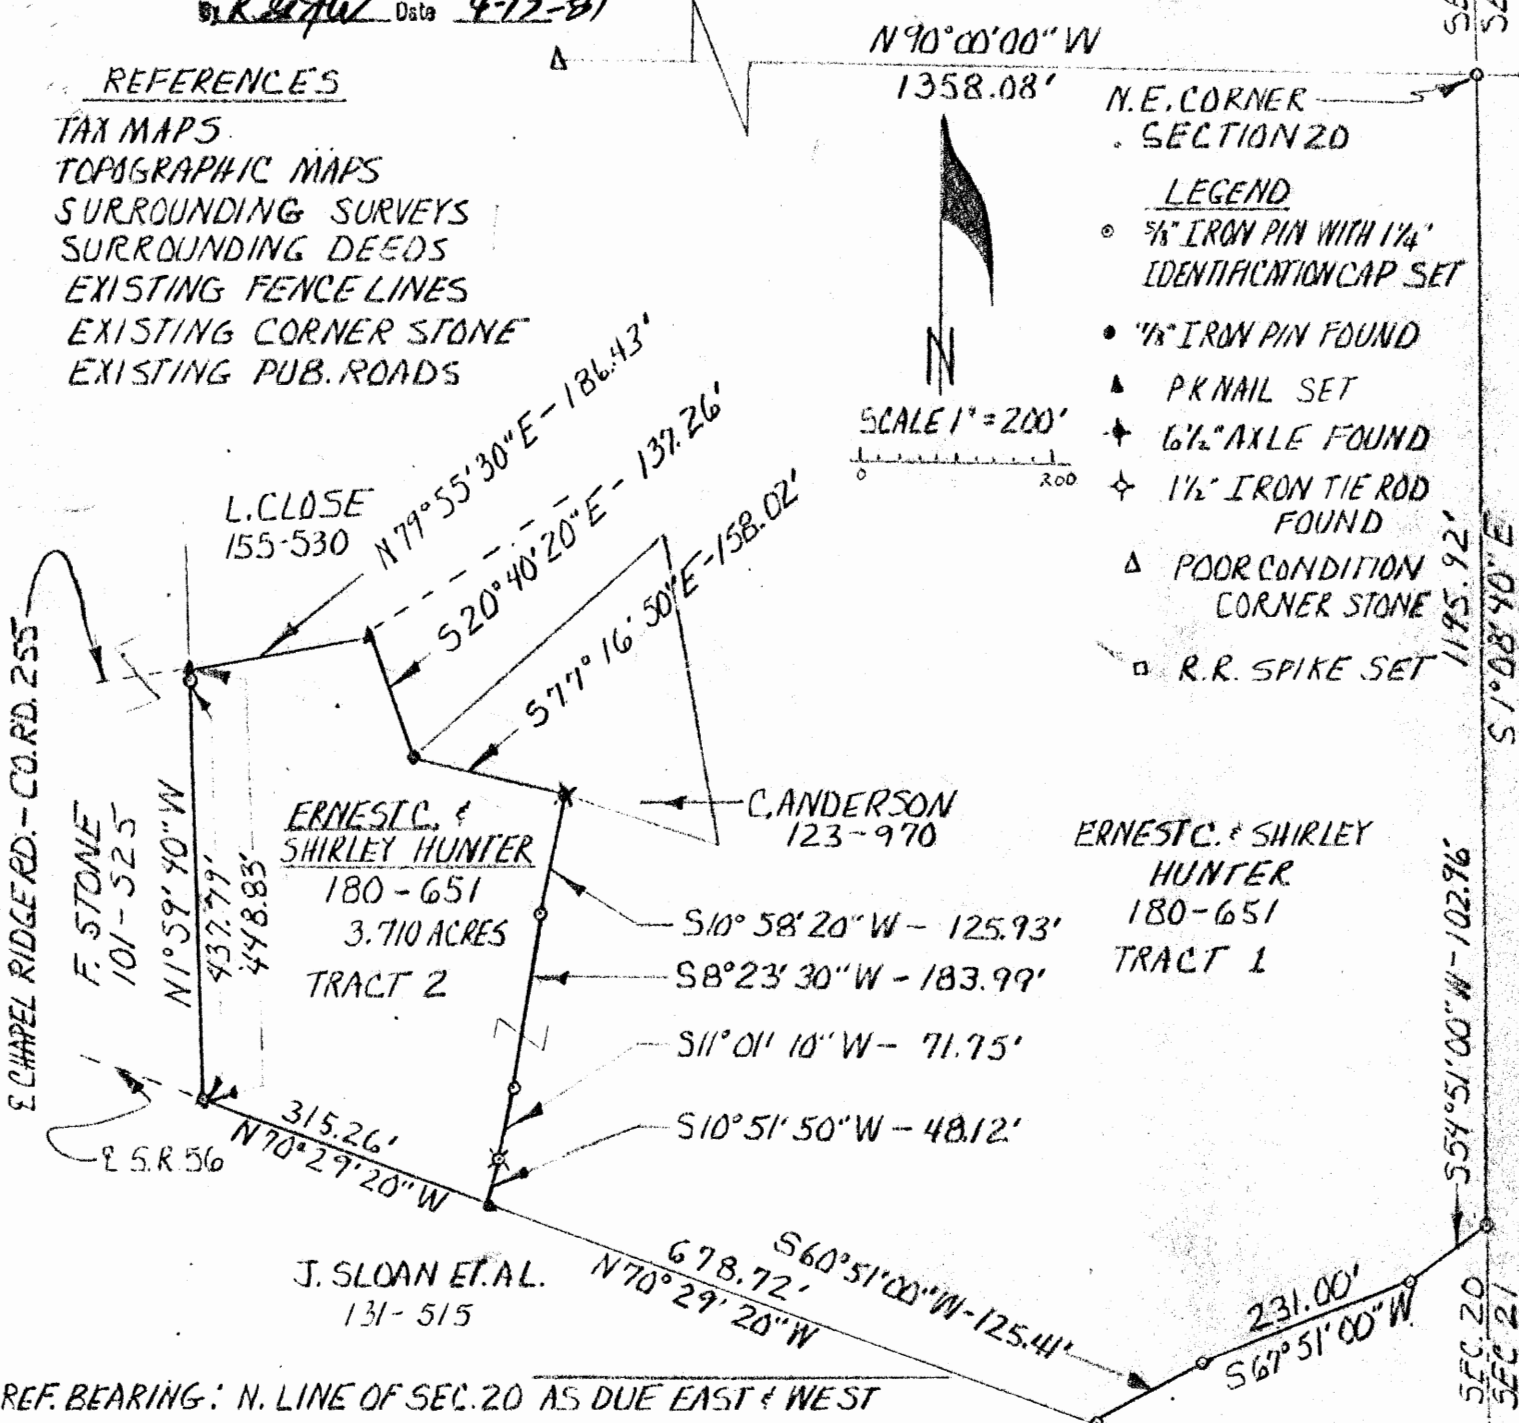 By Date 4-17-81
REFERENCES
TAX MAPS
TOPOGRAPHIC MAPS
SURROUNDING SURVEYS
SURROUNDING DEEDS
EXISTING FENCE LINES
EXISTING CORNER STONE
EXISTING PUB. ROADS
N 90°00'00" W
1358.08'
N.E. CORNER
SECTION 20
LEGEND
5/8" IRON PIN WITH 1 1/4"
IDENTIFICATION CAP SET
IRON PIN FOUND
PK NAIL SET
6 1/2" AXLE FOUND
1 1/2" IRON TIE ROD
FOUND
POOR CONDITION
CORNER STONE
R.R. SPIKE SET
N
SCALE 1" = 200'
0 200
L. CLOSE
155-530
N 79° 55' 30" E - 186.43'
S 20° 40' 20" E - 137.26'
S 77° 16' 50" E - 158.02'
℄ CHAPEL RIDGE RD. - CO. RD. 255
F. STONE
101-525
N 1° 59' 40" W
437.79'
448.83'
ERNEST C. &
SHIRLEY HUNTER
180-651
3.710 ACRES
TRACT 2
C. ANDERSON
123-970
ERNEST C. & SHIRLEY
HUNTER
180-651
TRACT 1
S 10° 58' 20" W - 125.93'
S 8° 23' 30" W - 183.99'
S 11° 01' 10" W - 71.75'
S 10° 51' 50" W - 48.12'
1195.92'
S 1° 08' 40" E
S 54° 51' 00" W - 102.96'
℄ S.R. 56
315.26'
N 70° 29' 20" W
J. SLOAN ET. AL.
131-515
678.72'
N 70° 29' 20" W
S 60° 51' 00" W - 125.41'
231.00'
S 67° 51' 00" W
SEC. 20
SEC 21
REF. BEARING: N. LINE OF SEC. 20 AS DUE EAST & WEST